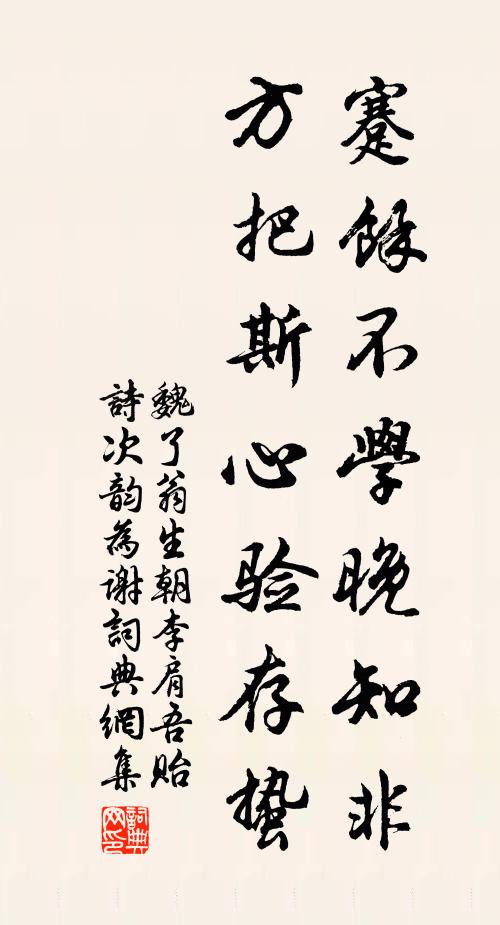 蹇餘不學晚知非
方把斯心验存蛰
魏了翁生朝李肩吾貽
詩次韵為谢詞典網集
詞典网印